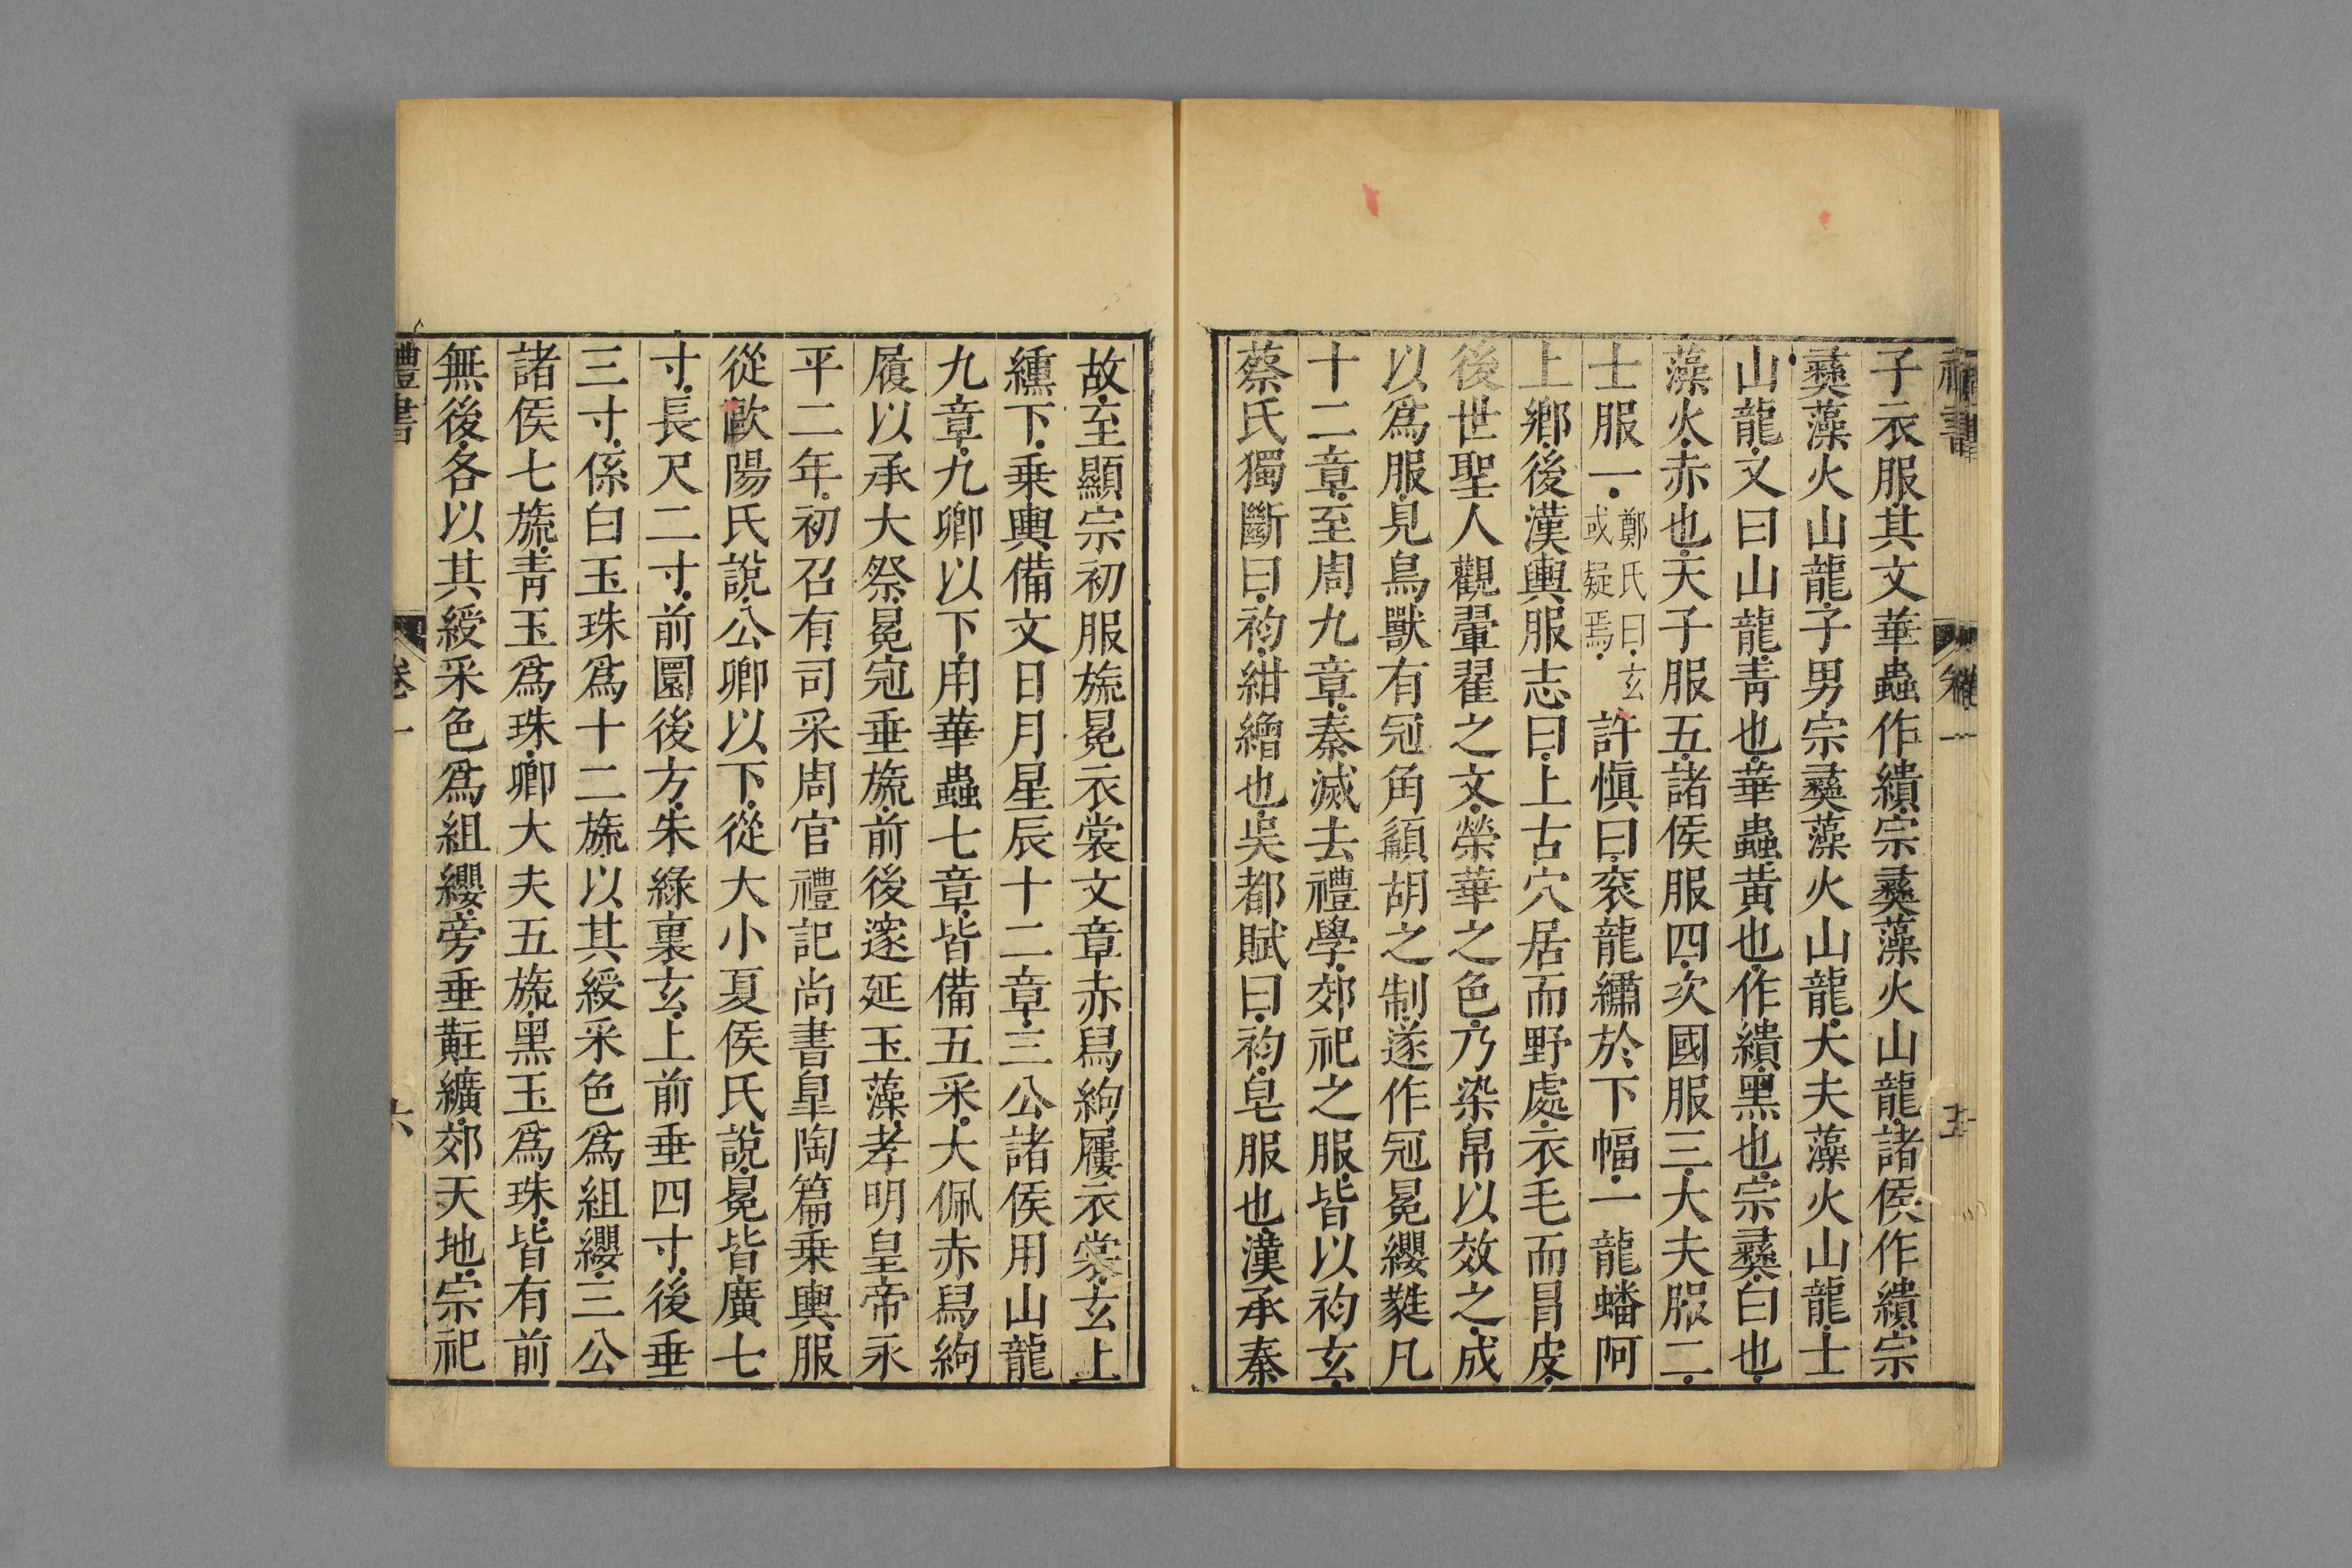 禮書
卷一
五
子衣服其文華蟲作繢宗彝藻火山龍諸侯作繢宗
彝藻火山龍子男宗彝藻火山龍大夫藻火山龍士
山龍文曰山龍青也華蟲黃也作繢黑也宗彝白也
藻火赤也天子服五諸侯服四次國服三大夫服二
士服一鄭氏曰玄或疑焉許慎曰衮龍繡於下幅一龍蟠阿
上鄉後漢輿服志曰上古穴居而野處衣毛而冒皮
後世聖人觀翬翟之文榮華之色乃染帛以效之成
以爲服見鳥獸有冠角顬胡之制遂作冠冕纓蕤凡
十二章至周九章秦滅去禮學郊祀之服皆以袀玄
蔡氏獨斷曰袀紺繒也吳都賦曰袀皂服也漢承秦
故至顯宗初服旒冕衣裳文章赤舄絇屨衣裳玄上
纁下乗輿備文日月星辰十二章三公諸侯用山龍
九章九卿以下用華蟲七章皆備五采大佩赤舄絇
履以承大祭冕冠垂旒前後邃延玉藻孝明皇帝永
平二年初召有司采周官禮記尚書皐陶篇乗輿服
從歐陽氏說公卿以下從大小夏侯氏說冕皆廣七
寸長尺二寸前圜後方朱緑裏玄上前垂四寸後垂
三寸係白玉珠爲十二旒以其綬采色爲組纓三公
諸侯七旒青玉爲珠卿大夫五旒黑玉爲珠皆有前
無後各以其綬采色爲組纓旁垂黈纊郊天地宗祀
禮書
卷一
六